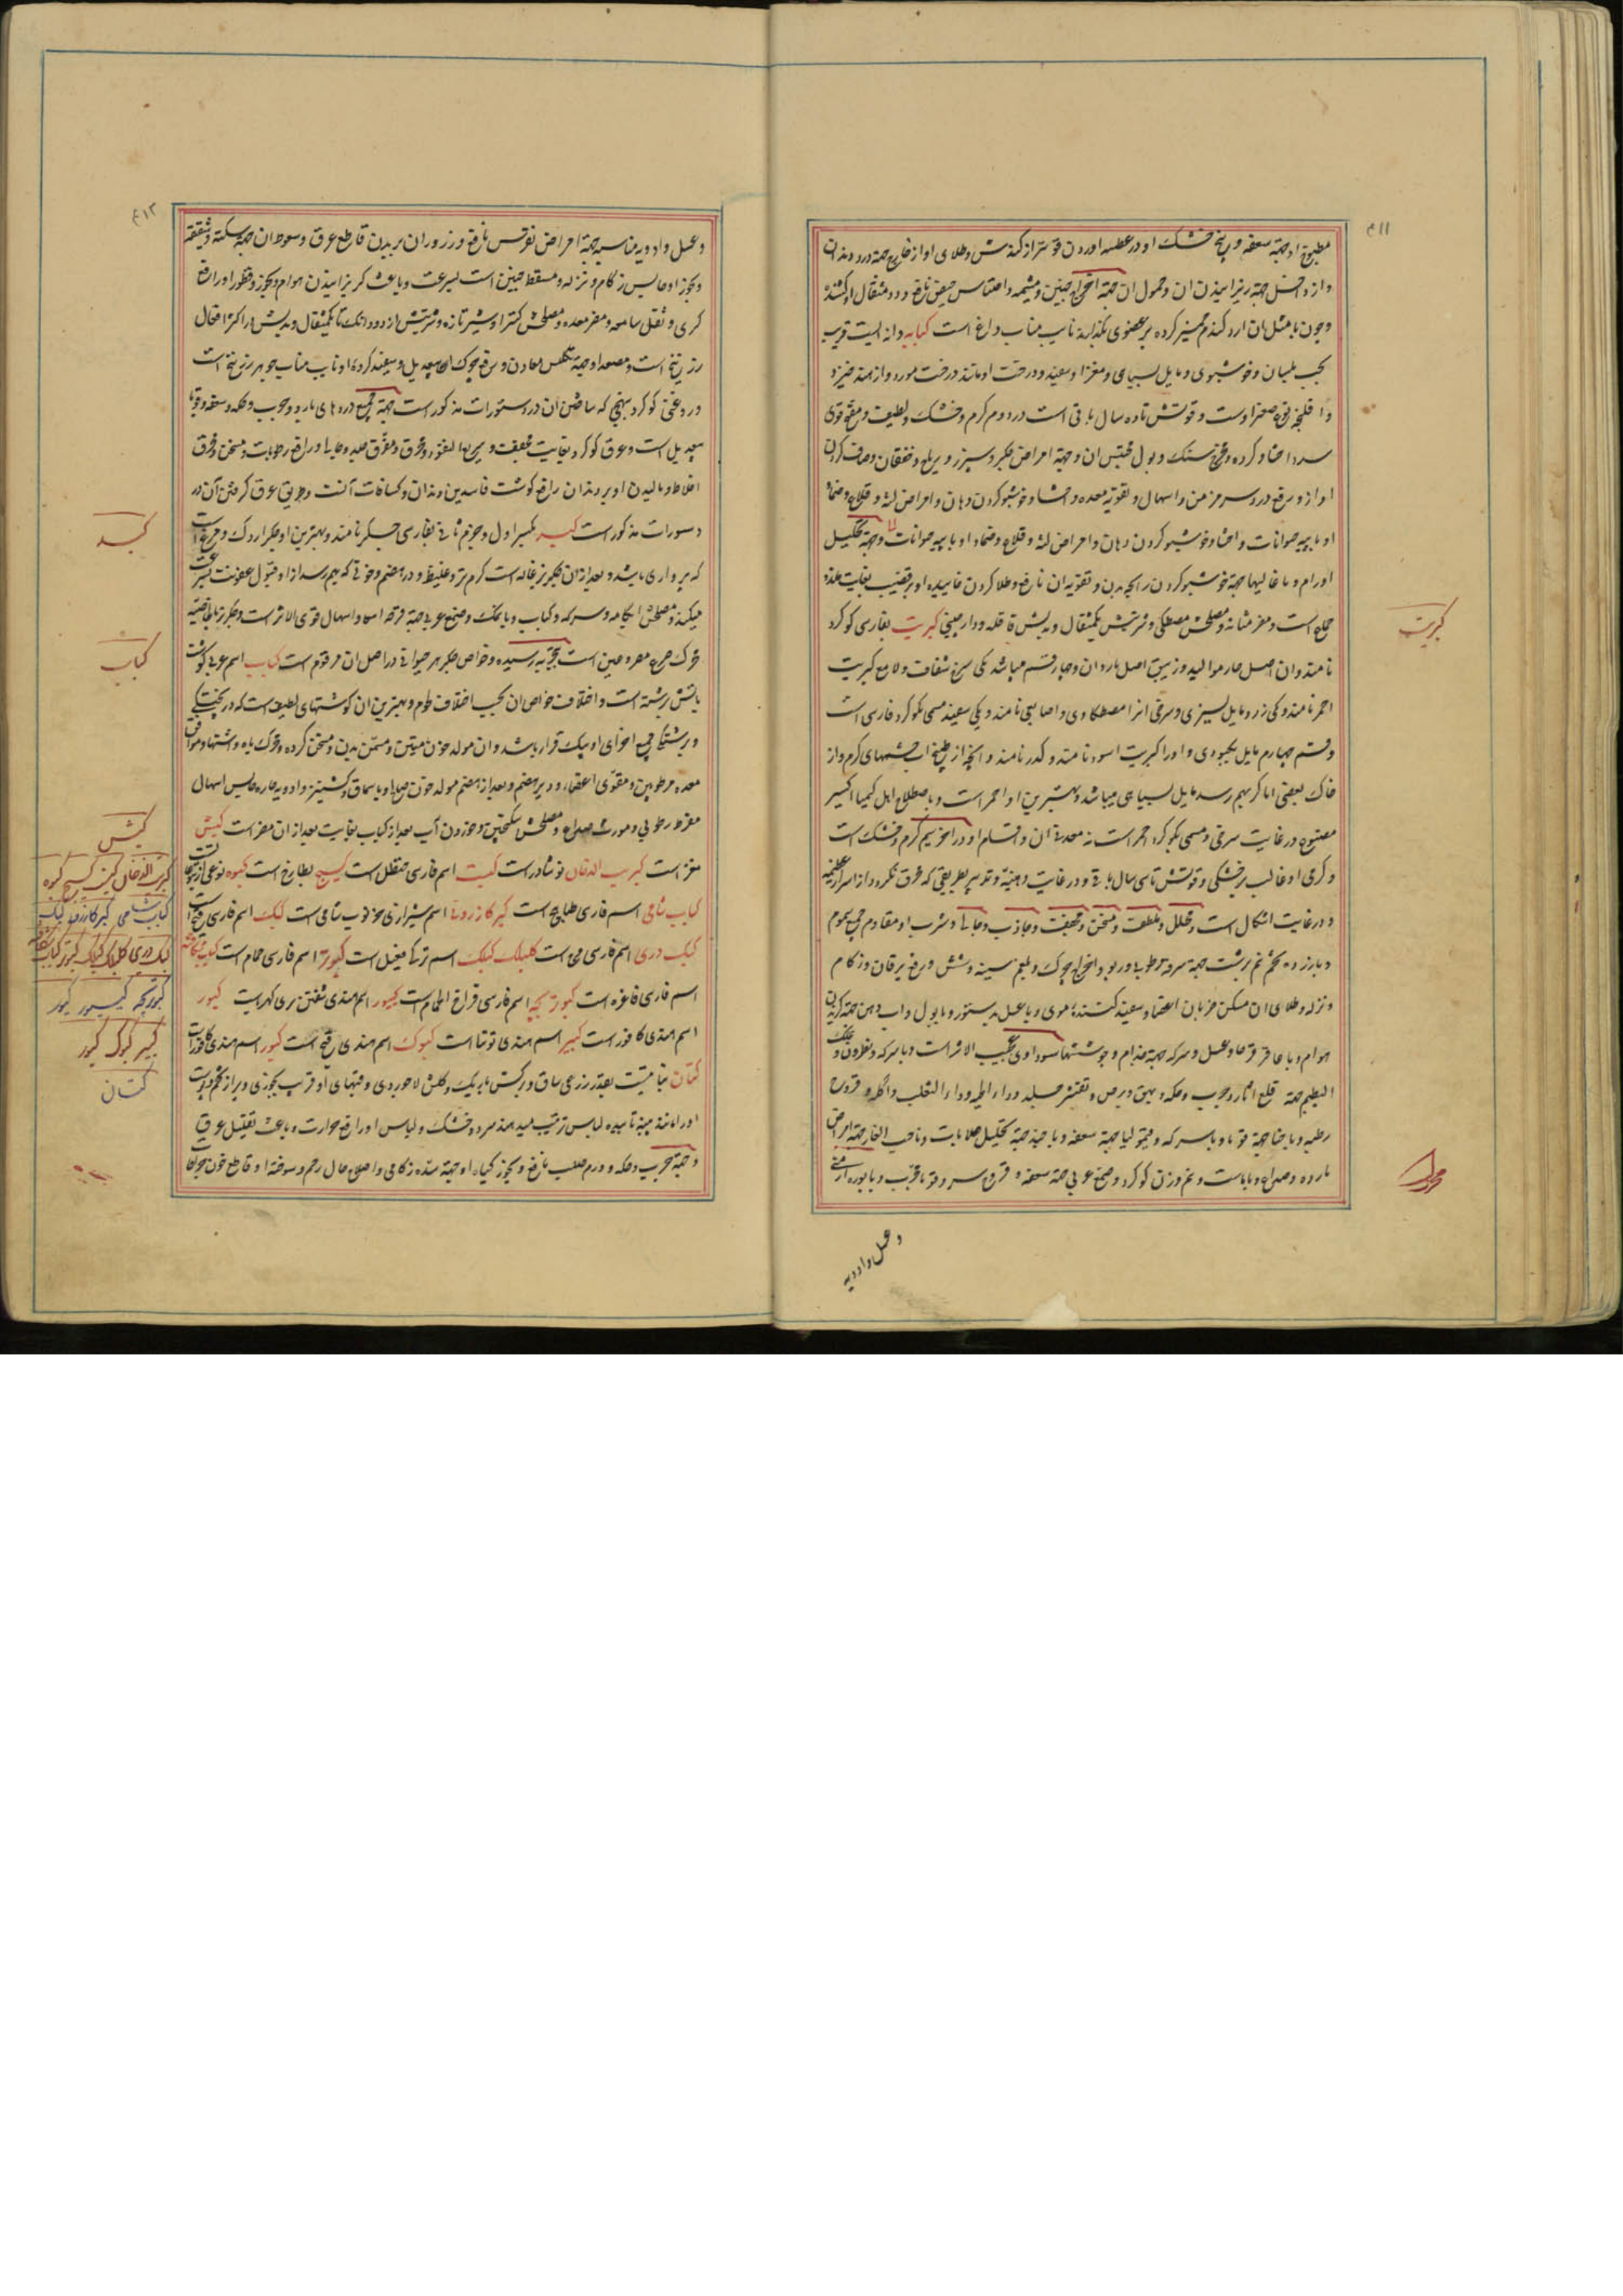 ۴۱۱
مطبوخ او جهة سعفه و بیخ خشک او در عطسه اوردن قویتر از کندش و طلای او از خارج جهة درد دندان
و از داخل جهة ریزانیدن ان و حمول ان جهة اخراج جنین و مشیمه و احتباس حیض نافع و دو مثقال او کشنده
و چون با مثل ان ارد کندم خمیر کرده بر عضوی بگذارند نایب مناب داغ است کبابه دانه ایست قریب
بحب بلسان و خوشبوی و مایل بسیاهی و مغز او سفید و درخت او مانند درخت مورد و از هند خیزد
و قوتش تا ده سال باقی است در دوم کرم و خشک و لطیف و مقوی
سرد احشا و کرده و مخرج سنک و بول محتبس ان و جهة امراض جکر و سپرز و یرقان و خفقان و صاف کردن
اواز و رفع درد سر مزمن و اسهال و تقویة معده و احشا و خوشبو کردن دهان و امراض لثه و قلاع و ضماد
او با پیه حیوانات و احشا و خوشبو کردن دهان و امراض لثه و قلاع و ضماد او با پیه حیوانات و جهة تحلیل
اورام و با غالیها جهة خوشبو کردن رایحه بدن و تقویة ان نافع و طلا کردن خاییده او بر قضیب بغایت ملذذ
جماع است و مضر مثانه و مصلحش مصطکی و شربتش یکمثقال و بدلش قاقله و دارچینی کبریت بفارسی کوکرد
نامند و ان اصل حار موالید و زیبق اصل بارد ان و چهار قسم میباشد یکی سرخ شفاف و لامع کبریت
احمر نامند و یکی زرد مایل بسبزی و سرخی انرا مصطکاوی و اصابعی نامند و یکی سفید مسمی بکوکرد فارسی است
و قسم چهارم مایل بکبودی و اورا کبریت اسود نامند و کدر نامند و انچه از طبخ اب چشمهای کرم و از
خاک بعضی اماکن بهم رسد مایل بسیاهی میباشد و بهترین او احمر است و باصطلاح اهل کیمیا اکسیر
مصنوع در غایت سرخی مسمی بکوکرد احمر است نه معدنی ان و اقسام او در اخر سیم کرم و خشک است
و کرمی او غالب بر خشکی و قوتش تا سی سال باقی و در غایت دهنیة و تدبیر بطریقی که محرق نکردد از اسرار عظیمه
و در غایت اشکال است و محلل و ملطف و مسخن و مجفف و جاذب و جالی و شرب او مقاوم جمیع سموم
و با زرده تخم نیم برشت جهة سرفه رطوبی و ربو و اخراج چرک و بلغم سینه و شش و رفع یرقان و زکام
و نزله و طلای ان مسکن ضربان اعضا و سفید کننده موی و با عسل بدستور و با بول و اب دهن جهة کزیدن
هوام و با عاقرقرحا و عسل و سرکه جهة جذام و جوششهای سوداوی عجیب الاثر است و با سرکه و نطرون و علک
البطم جهة قلع اثار و جرب و حکه و بهق و برص و تقشر جلد و داء الحیه و داء الثعلب و اکله و قروح
رطبه و با حنا جهة قوبا و با سرکه و قیمولیا جهة سعفه و با جهة تحلیل صلابات و با حب الغار جهة امراض
بارده و صداع و با است و نیم وزن کوکرد و صمغ عربی جهة سعفه و قروح سر و قوبا مجرب و با بوره ارمنی
و عسل و ادویه
کبریت
۴۱۲
و عسل و ادویه مناسبه جهة امراض نقرس نافع و زرور ان بر بدن قاطع عرق و سعوط ان جهة سکته و شقیقه
و بخور او حابس زکام و نزله و مسقط جنین است بسرعت و باعث کریزانیدن هوام و بخور و قطور او رافع
کری و ثقل سامعه و مضر معده و مصلحش کتیرا و شیر تازه و شربتش از دو دانک تا یکمثقال و بدلش در اکثر افعال
زرنیخ است و مصعد او جهة تکلیس معادن و رفع چرک انها بیعدیل و سفید کرده او نایب مناب جوهر زرنیخ است
و روغن کوکرد بنهجی که ساختن ان در دستورات مذکور است جهة جمیع دردهای بارد و جرب و حکه و سعفه و قوبا
بیعدیل است و عرق کوکرد بغایت مجفف و سریع النفوذ و محرق و مفرق جلد و جالی و رافع رطوبات و مسخن و محرق
اخلاط و مالیدن او بر دندان رافع کوشت فاسد بن دندان و کثافات آنست و طریق عرق کرفتن آن در
دستورات مذکور است کبد بکسر اول و جزم ثانی بفارسی جکر نامند و بهترین او جکر اردک و مرغ است
که پرواری باشد و بعد از ان جکر بزغاله است کرم و تر و غلیظ و دیر هضم و خونی که بهم رسد از او قبول عفونت بسرعت
میکند و مصلحش ابکامه و سرکه و کباب و با نمک و صمغ عربی جهة قرحه امعا و اسهال قوی الاثر است و جکر بز بالخاصیه
محرک صرع مصروعین است بتجربه رسیده و خواص جکر هر حیوانی در اصل ان مرقوم است کباب اسم عربی کوشت
باتش برشته است و اختلاف خواص ان بحسب اختلاف لحوم و بهترین ان کوشتهای لطیف است که در پختکی
و برشتکی جمیع اجزای او بیک قرار باشد و ان مولد خون متین و مسمن بدن و مسخن کرده و محرک باه و اشتها و موافق
معده مرطوبین و مقوی اعضا و دیر هضم و بعد از هضم مولد خون صالح و با سماق و کشنیز و ادویه حاره حابس اسهال
مفرط رطوبی و مورث صداع و مصلحش سکنجبین و خوردن آب بعد از کباب بغایت بعد از ان مضر است کبش
معز است کبریت الدخان نوشادر است کبست اسم فارسی حنظل است کبیج بطارخ است کبوه نوعی از یتوعات
کباب شامی اسم فارسی طباهج است کبر کازرونی اسم شیرازی خرنوب شامی است کبک اسم فارسی قبج است
کبک دری اسم فارسی است کلیک اسم ترکی مغیل است کبوتر اسم فارسی حمام است
اسم فارسی فاخره است کبوتر بچه اسم فارسی فراخ الحمام است کیسور اسم هندی کپور
اسم هندی کافور است کبیر اسم هندی توتیا است کبوک اسم هندی است کپور اسم هندی کافور است
کتان نباتیست بقدر ذرعی ساق و برکش باریک و کلش لاجوردی و قبهای او قریب بجوزی و پر از تخم و پوست
اورا مانند پنبه تابیده لباس ترتیب میدهند سرد و خشک و لباس او رافع حرارت و باعث تقلیل عرق
و جهة جرب و حکه و ورم صلب نافع و بخور کیاه او جهة سده زکامی و اصلاح حال رحم و سوخته او قاطع خون جراحات
کبد
کباب
کبش
کبریت الدخان کبست کبیج کبوه
کباب شامی کبر کازرونی کبک
کبک دری
کبوتر بچه کیسور کپور
کبیر کبوک کپور
کتان